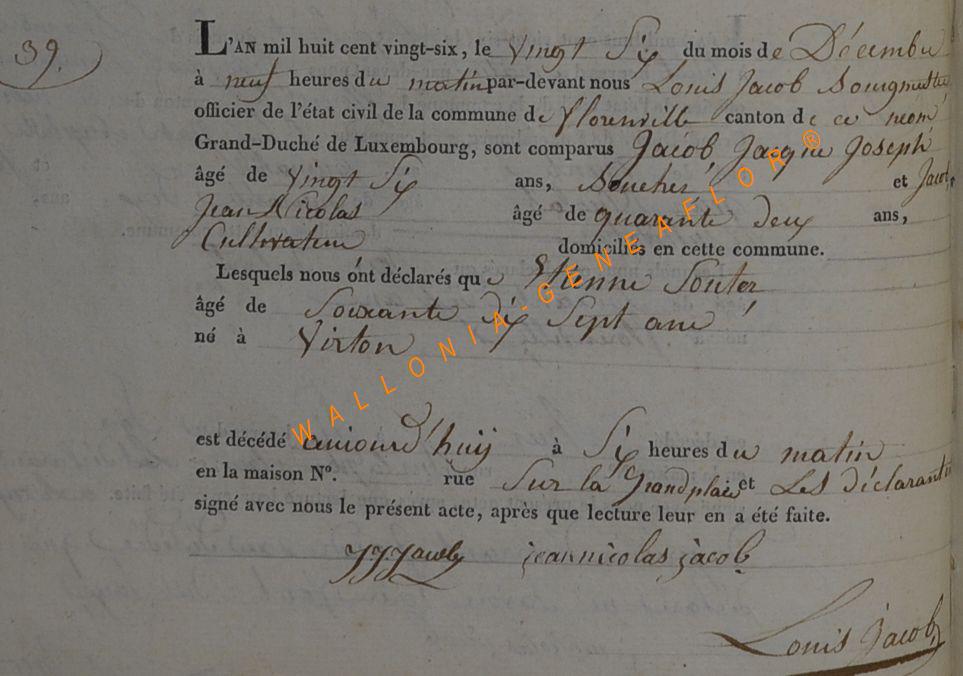 39.
L'AN mil huit cent vingt-six, le vingt Six du mois de Décembre
à neuf heures du matin par-devant nous Louis Jacob Bourgmestre
officier de l'état civil de la commune de florenville canton de ce nom
Grand-Duché de Luxembourg, sont comparus Jacob Jacque Joseph
âgé de vingt Six ans, et Jacob,
Jean Nicolas âgé de quarante deux ans,
Cultivateur domiciliés en cette commune.
Lesquels nous ont déclarés que Etienne Souter
âgé de Soixante dix Sept ans
né à Virton
est décédé aujourd'huy à Six heures du matin
en la maison N°. rue Sur la Grandplace et Les déclarants
signé avec nous le présent acte, après que lecture leur en a été faite.
JJJacob jeannicolas jacob
Louis Jacob
WALLONIA-GENEAFLOR®